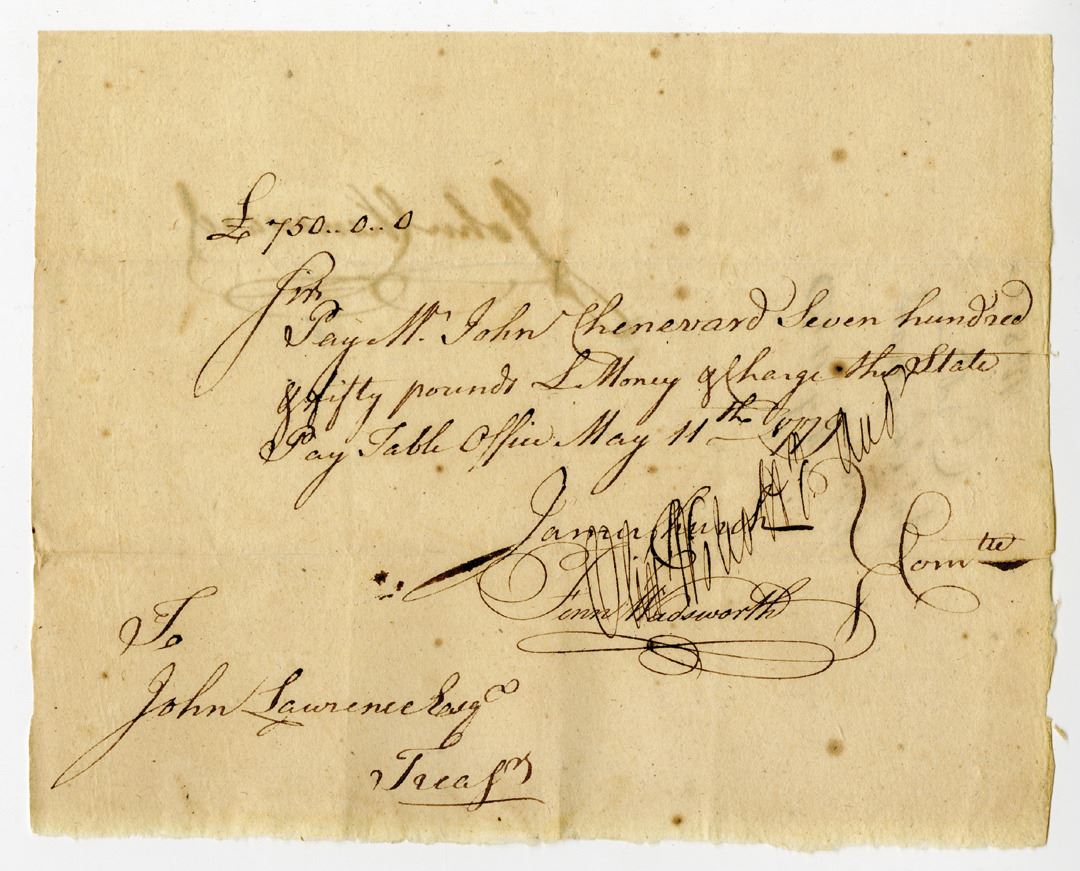 £750..0..0
Sir
Pay Mr. John Chenevard Seven hundred
& fifty pounds L Money & Charge the State
Pay Table Office May 11th 1779
James Church
Fenn Wadsworth
Comtte
To
John Lawrence Esqr
Treasr